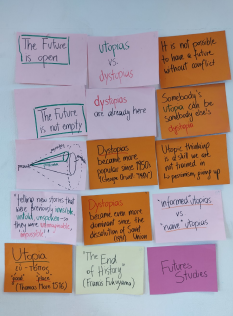 The Future
is open
utopias
vs.
dystopias
It is not possible
to have a future
without conflict
The Future
is not empty
dystopias
are already here
Somebody's
utopia can be
somebody else's
dystopia
Dystopias
became more
popular since 1950s
Utopic thinking
is a skill we are
not trained in
growing up
"telling new stories that
were previously invisible,
untold, unspoken - so
they were unthinkable,
impossible"
Dystopias
became even more
dominant since the
dissolution of
Union
"informed" utopias
vs
"naive" utopias
Utopia
"good" "place"
(Thomas More 1516)
"The End
of History"
(Francis Fukuyama)
Futures
Studies